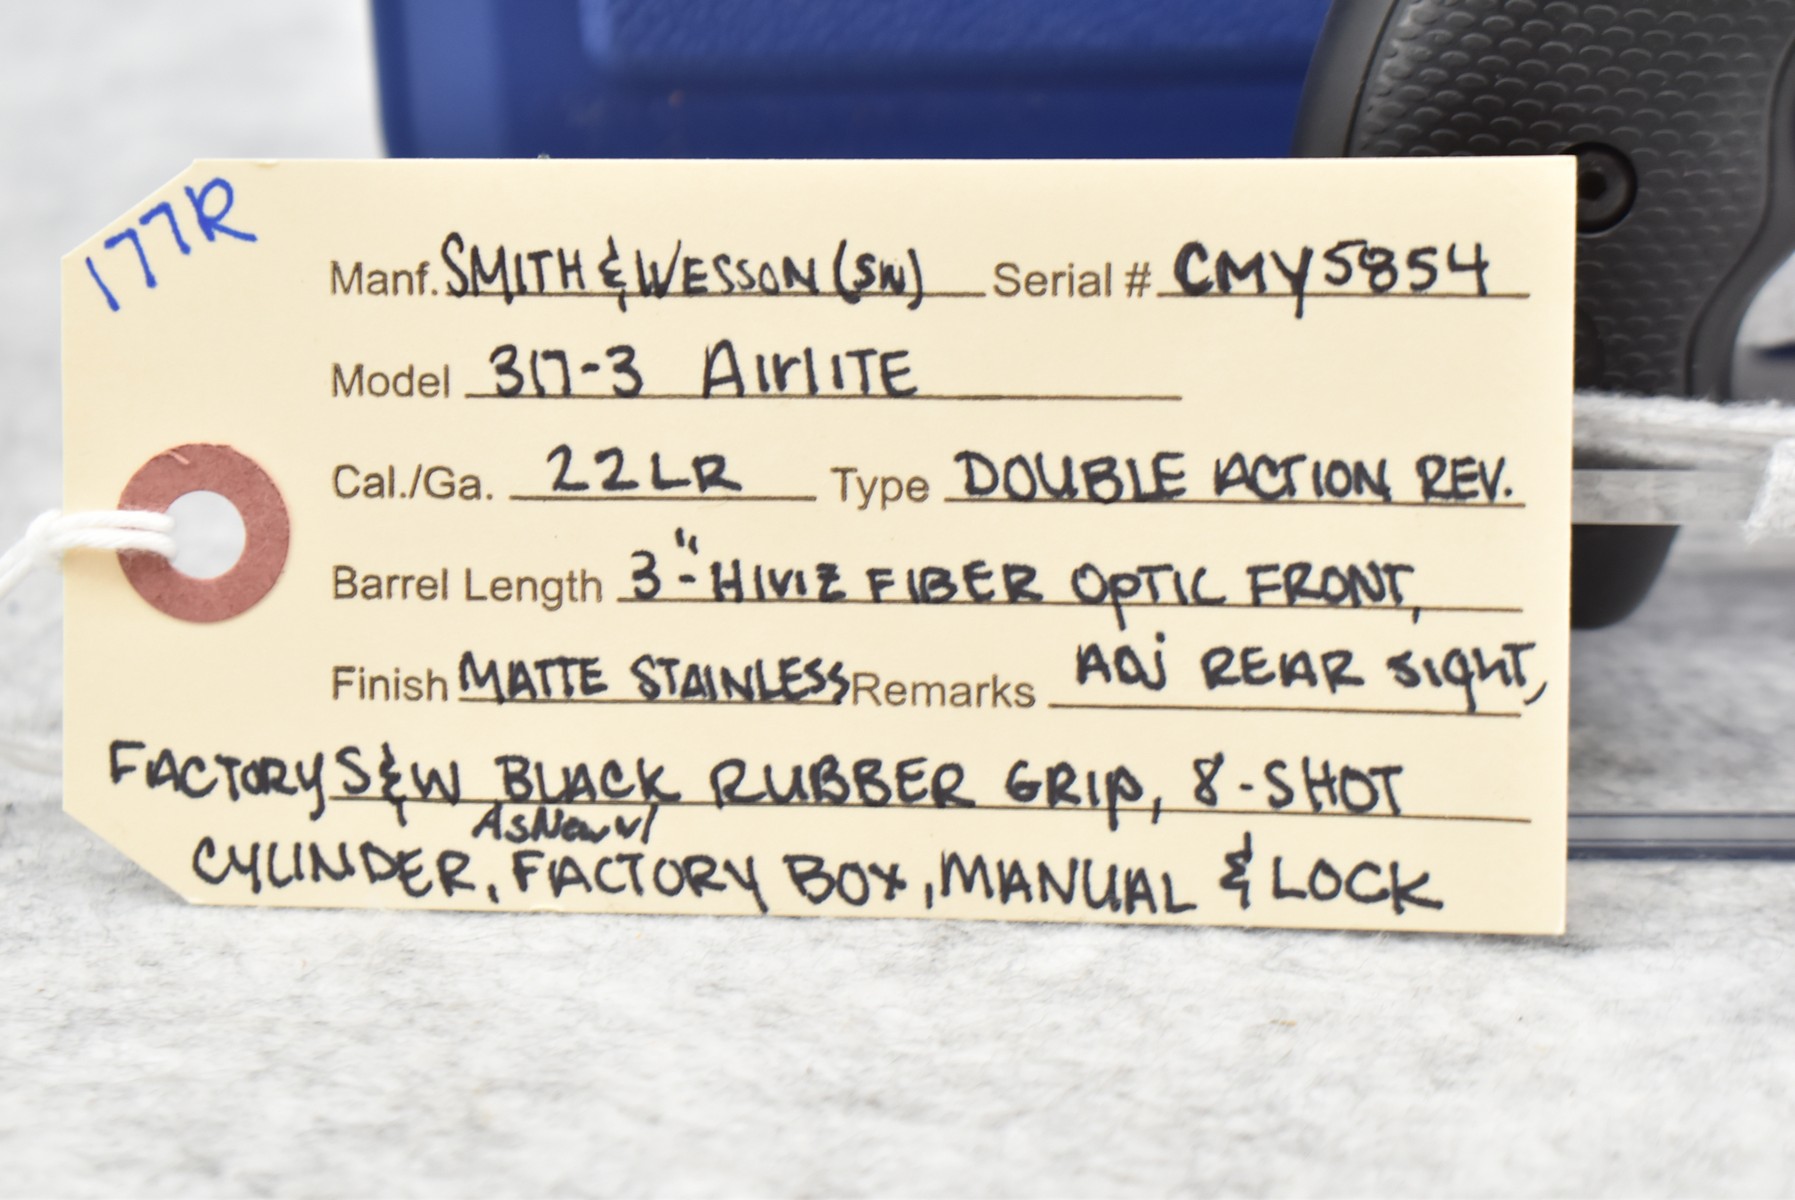 177R
Manf. SMITH & WESSON (SW) Serial # CMY5854
Model 317-3 AIrlITE
Cal./Ga. 22LR Type DOUBLE ACTION REV.
Barrel Length 3"-HIVIZ FIBER OPTIC FRONT,
Finish MATTE STAINLESS Remarks ADJ REAR SIGHT,
FACTORY S&W BLACK RUBBER GRIP, 8-SHOT
As New w/
CYLINDER, FACTORY BOX, MANUAL & LOCK